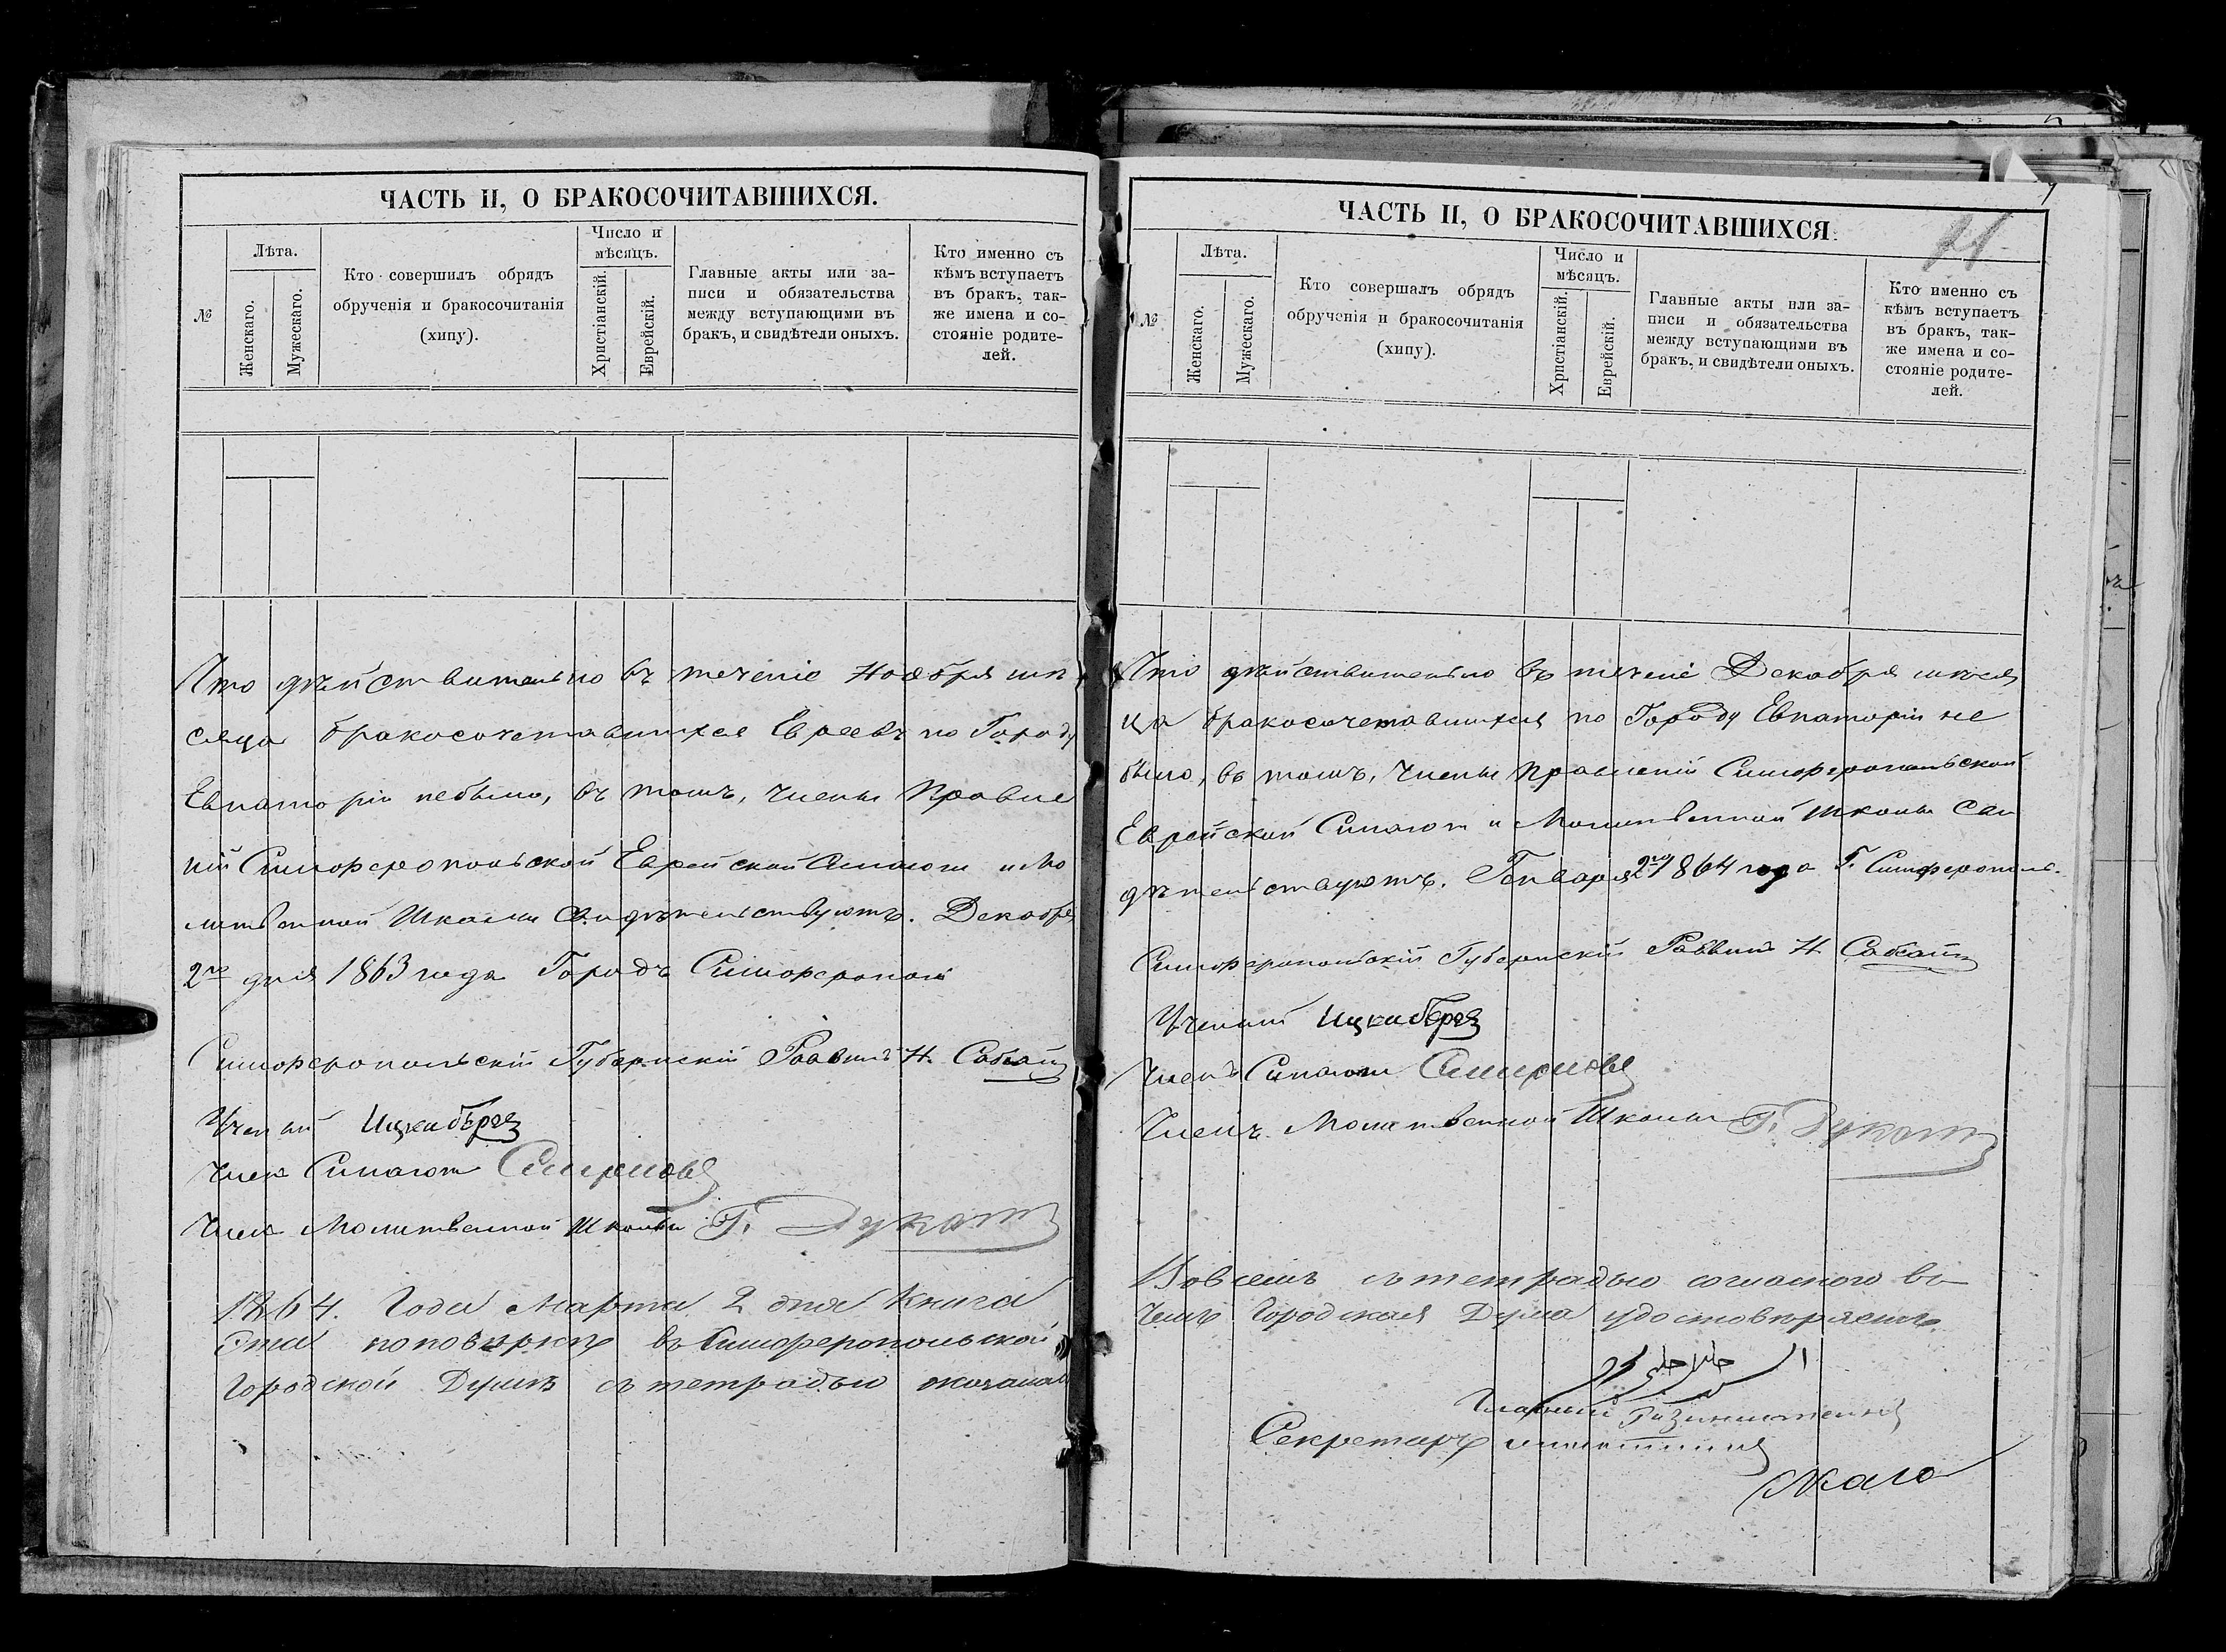 ЧАСТЬ II, О БРАКОСОЧИТАВШИХСЯ.
№
Лѣта.
Женскаго.
Мужескаго.
Кто совершилъ обрядъ
обрученія и бракосочитанія
(хипу).
Число и
мѣсяцъ.
Христіанскій.
Еврейскій.
Главные акты или за-
писи и обязательства
между вступающими въ
бракъ, и свидѣтели оныхъ.
Кто именно съ
кѣмъ вступаетъ
въ бракъ, так-
же имена и со-
стояніе родите-
лей.
Что дѣйствительно въ теченіе Ноября мѣ
сяца бракосочетавшихся Евреевъ по Городу
Евпаторіи небыло, въ томъ, Члены Правле
ній Симферопольской Еврейской Синагоги и Мо
литвенной Школы Свидѣтельствуютъ. Декабря
2го дня 1863 года Городъ Симферополь
Симферопольскій Губернскій Раввинъ Н.
Ученый
Членъ Синагоги
Членъ Молитвенной Школы Г. Дукатъ
1864. Года Марта 2 дня Книга
Сія по повѣркѣ въ Симферопольской
Городской Думѣ съ тетрадью оказалась
ЧАСТЬ II, О БРАКОСОЧИТАВШИХСЯ.
№
Лѣта.
Женскаго.
Мужескаго.
Кто совершалъ обрядъ
обрученія и бракосочитанія
(хипу).
Число и
мѣсяцъ.
Христіанскій.
Еврейскій.
Главные акты или за-
писи и обязательства
между вступающими въ
бракъ, и свидѣтели оныхъ.
Кто именно съ
кѣмъ вступаетъ
въ бракъ, так-
же имена и со-
стояніе родите-
лей.
Что дѣйствительно въ теченіе Декабря мѣся
ца бракосочетавшихся по Городу Евпаторіи не
было, въ томъ, Члены Правленій Симферопольской
Еврейской Синагоги и Молитвенной Школы Сви
дѣтельствуютъ. Генваря 2го 1864 года Г. Симферополь.
Симферопольскій Губернскій Раввинъ Н.
Ученый
Членъ Синагоги
Членъ Молитвенной Школы Г. Дукатъ
Во всемъ съ тетрадью согласною въ
чемъ Городская Дума удостовѣряетъ.
Секретарь